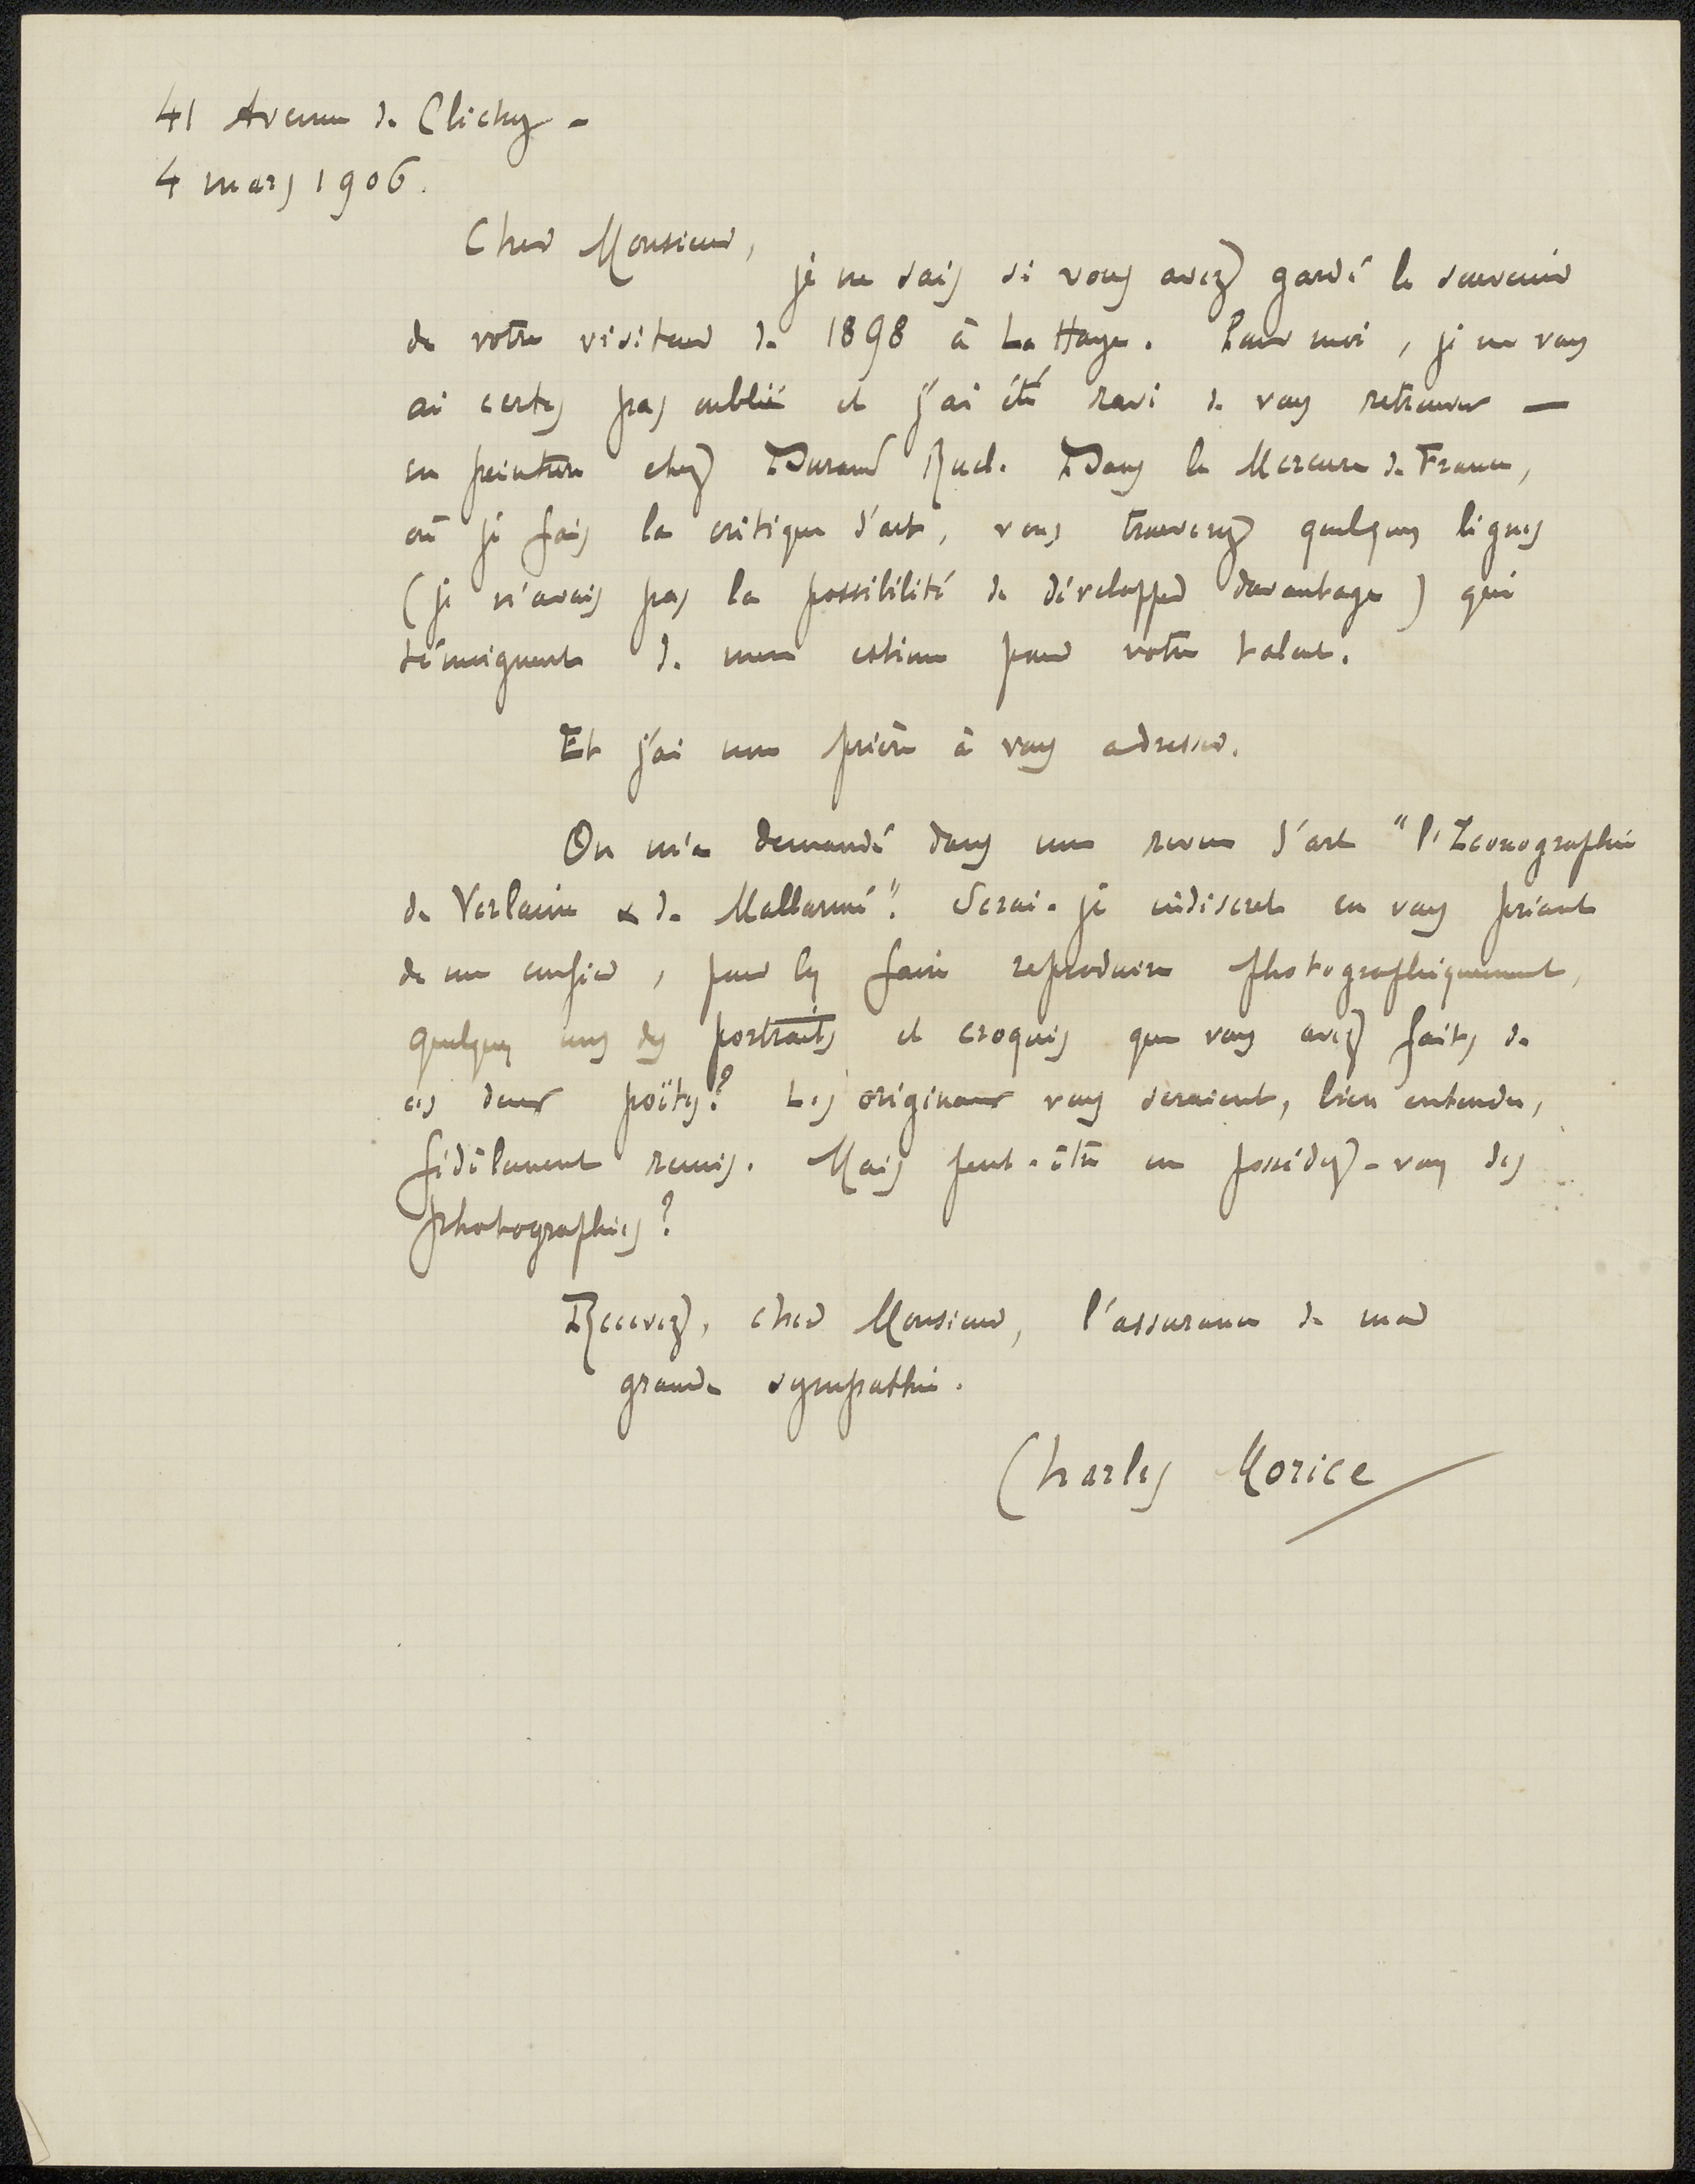 41 Avenue de Clichy -
4 mars 1906.
Cher Monsieur,
je ne sais si vous avez gardé le souvenir
de votre visiteur de 1898 à La Haye. Pour moi, je ne vous
ai certes pas oublié et j'ai été ravi de vous retrouver —
en peinture chez Durand Ruel. Dans le Mercure de France,
où je fais la critique d'art, vous trouverez quelques lignes
(je n'avais pas la possibilité de développer davantage) qui
témoignent de mon estime pour votre talent.
Et j'ai une prière à vous adresser.
On m'a demandé dans une revue d'art "l'Iconographie
de Verlaine & de Mallarmé". Serai-je indiscret en vous priant
de me confier, pour les faire reproduire photographiquement,
quelques uns des portraits et croquis que vous avez faits de
ces deux poëtes? Les originaux vous seraient, bien entendu,
fidèlement remis. Mais peut-être en possédez-vous des
photographies?
Recevez, cher Monsieur, l'assurance de ma
grande sympathie.
Charles Morice